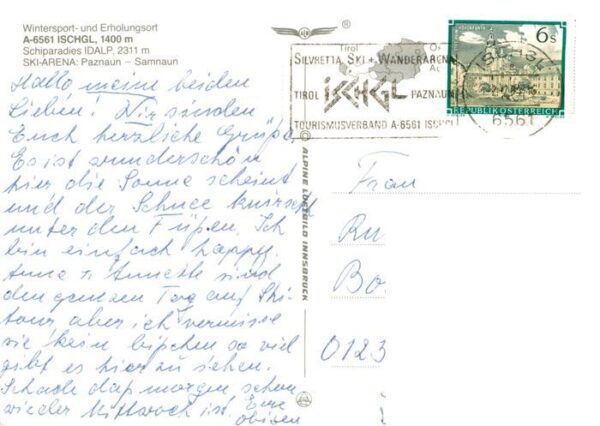 Wintersport- und Erholungsort
A-6561 ISCHGL, 1400 m
Schiparadies IDALP, 2311 m
SKI-ARENA: Paznaun – Samnaun
Hallo, meine beiden
Lieben! Wir senden
Euch herzliche Grüße,
Es ist wunderschön
hier die Sonne scheint
und der Schnee knirscht
unter den Füßen. Ich
bin einfach happy.
Anne u. Annette sind
den ganzen Tag auf Ski-
tour aber ich vermisse
sie kein bißchen so viel
gibt es hier zu sehen.
Schade daß morgen schon
wieder Mittwoch ist. Eure
obigen
®
Tirol
SILVRETTA SKI + WANDERARENA
TIROL ISCHGL PAZNAUN
TOURISMUSVERBAND A-6561 ISCHGL
6 S
REPUBLIK ÖSTERREICH
ISCHGL
6561
© ALPINE LUFTBILD INNSBRUCK
Frau
Ru
Bo
0123